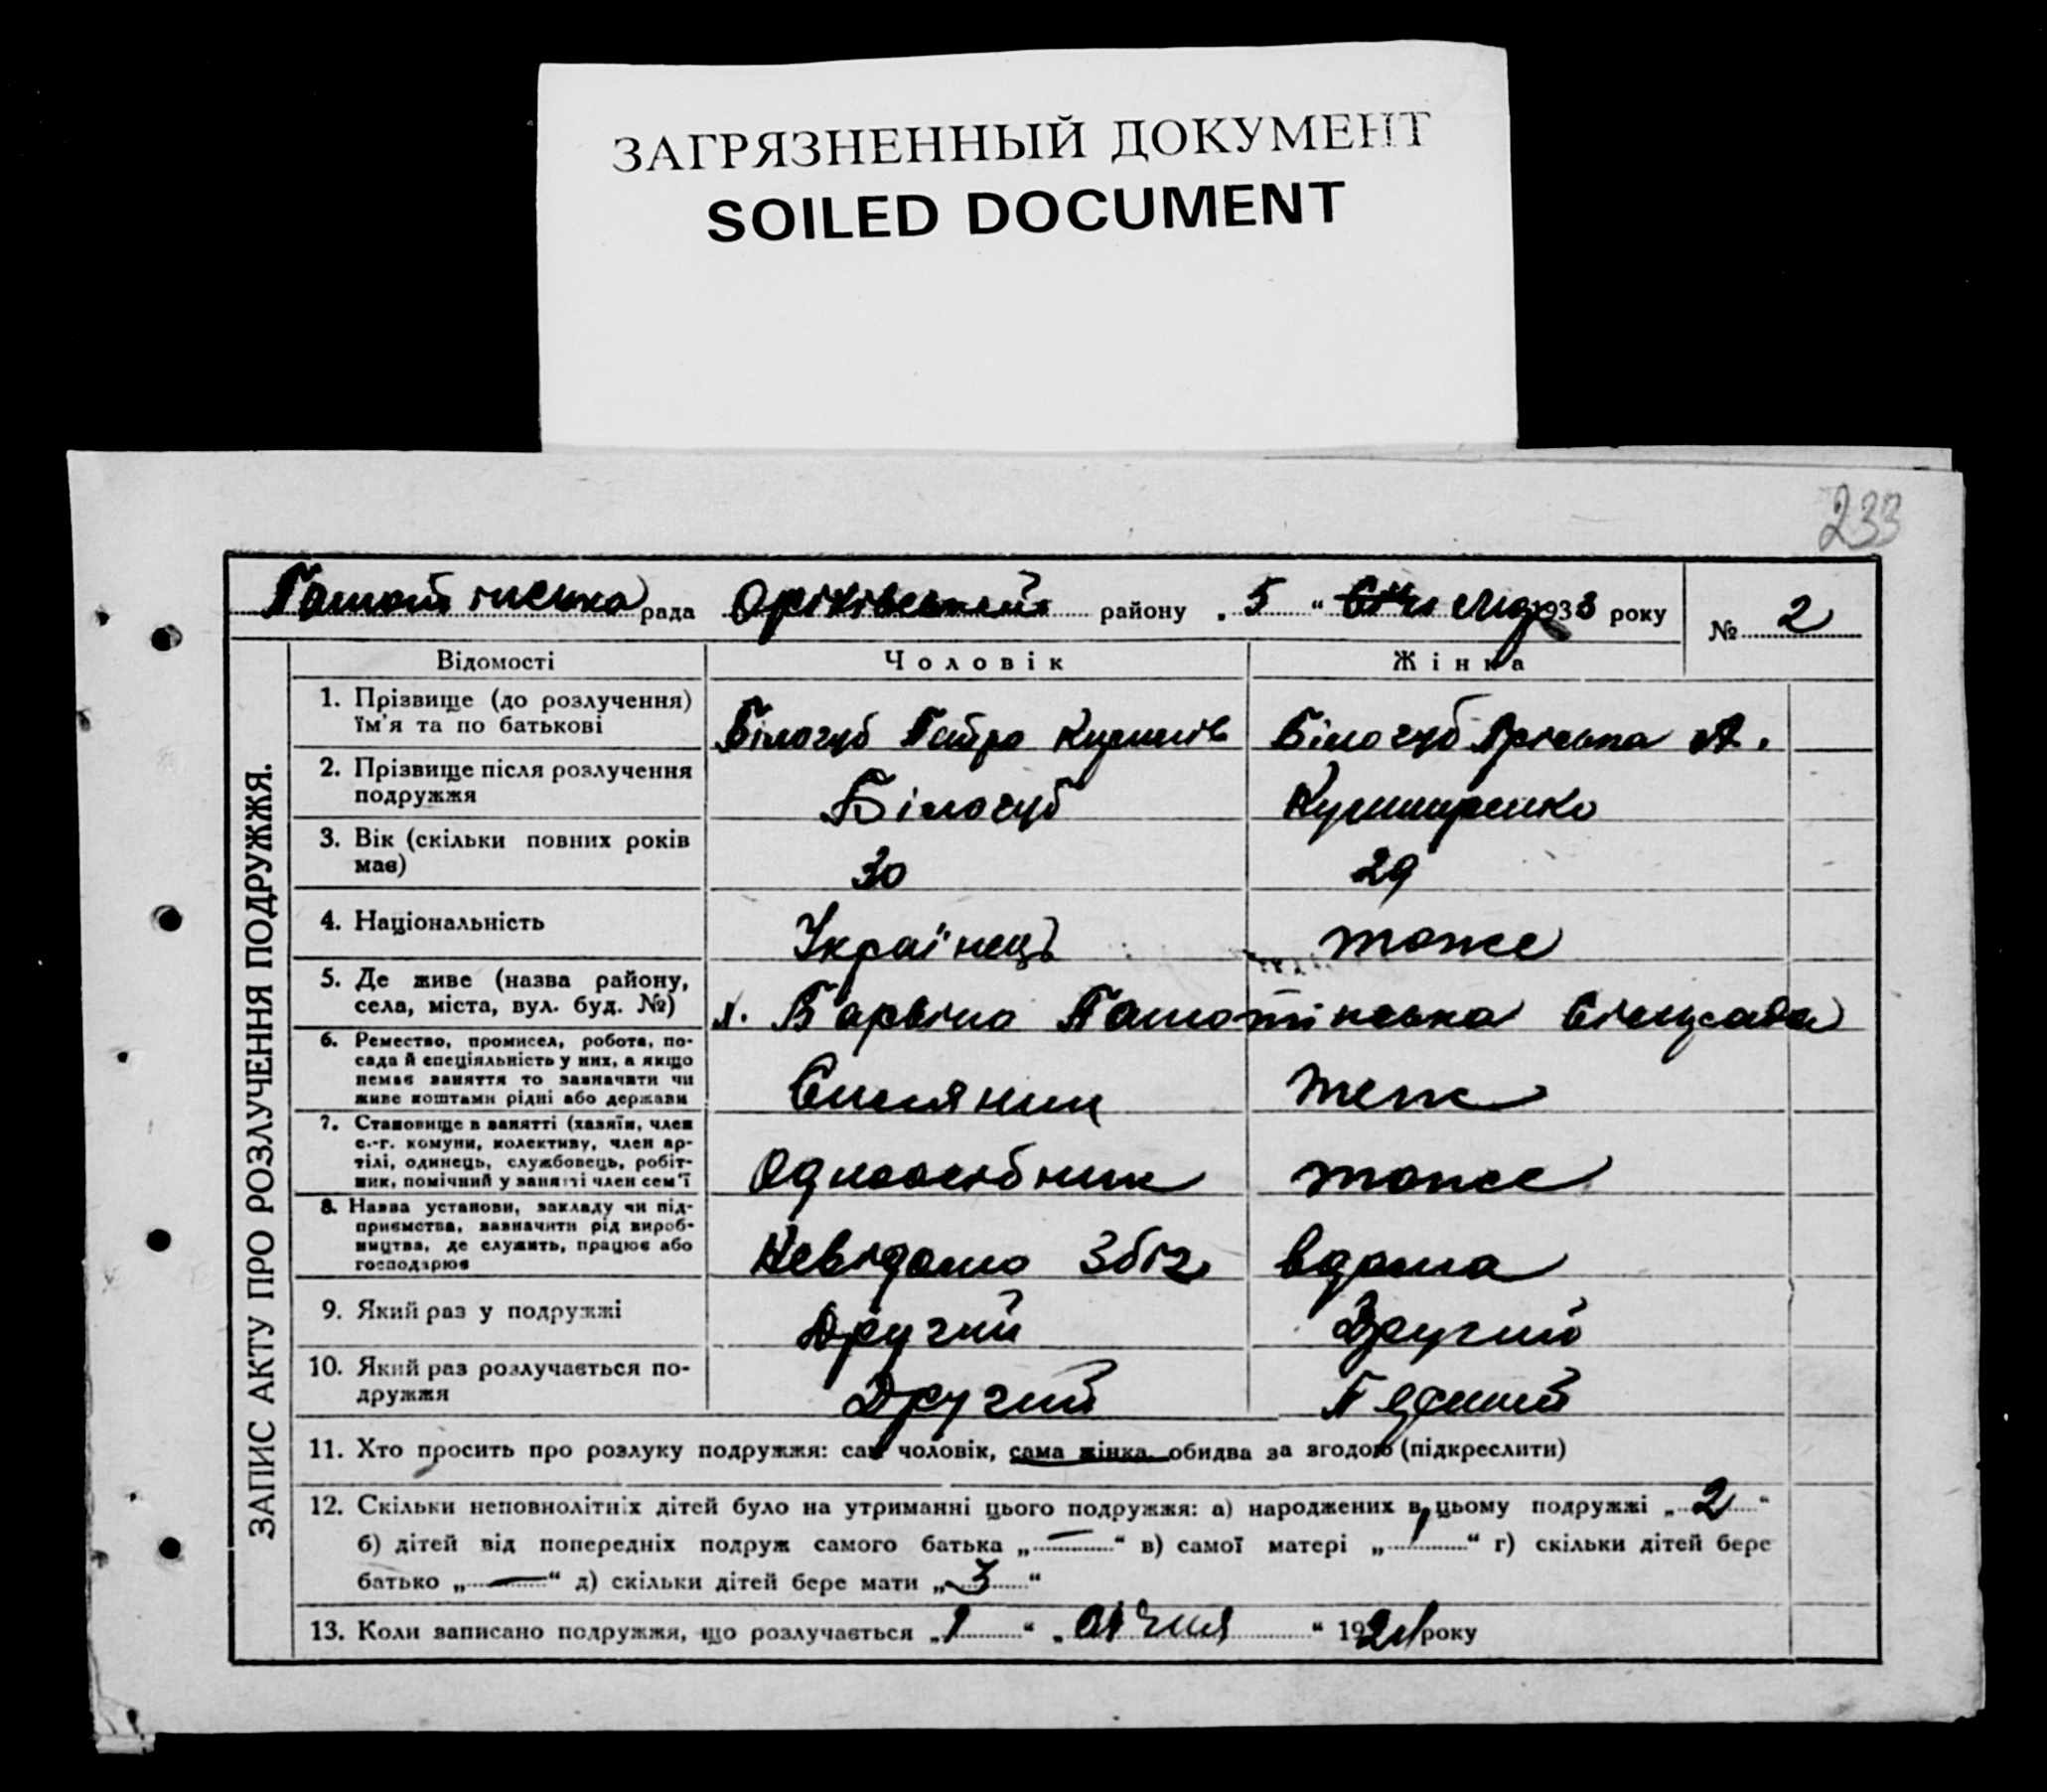 ЗАГРЯЗНЕННЫЙ ДОКУМЕНТ
SOILED DOCUMENT
233
рада Оріхівський району „ 5 “ 1933 року
№ 2
ЗАПИС АКТУ ПРО РОЗЛУЧЕННЯ ПОДРУЖЖЯ.
Відомості Чоловік Жінка
1. Прізвище (до розлучення)
їм'я та по батькові
Білогуб Петро Білогуб Пріська А.
2. Прізвище після розлучення
подружжя
Білогуб Кушниренко
3. Вік (скільки повних років
має)
30 29
4. Національність Українець тоже
5. Де живе (назва району,
села, міста, вул. буд. №)
6. Ремество, промисел, робота, по-
сада й спеціяльність у них, а якщо
немає заняття то зазначити чи
живе коштами рідні або держави
Селяник теж
7. Становище в занятті (хазяїн, член
с.-г. комуни, колективу, член ар-
тілі, одинець, службовець, робіт-
ник, помічний у занятті член сем'ї
Одноосібник тоже
8. Назва установи, закладу чи під-
приємства, зазначити рід вироб-
ництва, де служить, працює або
господарює
Невідомо Збіг вдома
9. Який раз у подружжі Другий Другий
10. Який раз розлучається по-
дружжя
Другий
11. Хто просить про розлуку подружжя: сам чоловік, сама жінка, обидва за згодою (підкреслити)
12. Скільки неповнолітніх дітей було на утриманні цього подружжя: а) народжених в цьому подружжі „ 2 “
б) дітей від попередніх подруж самого батька „ — “ в) самої матері „ 1 “ г) скільки дітей бере
батько „ — “ д) скільки дітей бере мати „ 3 “
13. Коли записано подружжя, що розлучається „ 1 “ „ січня “ 192 року